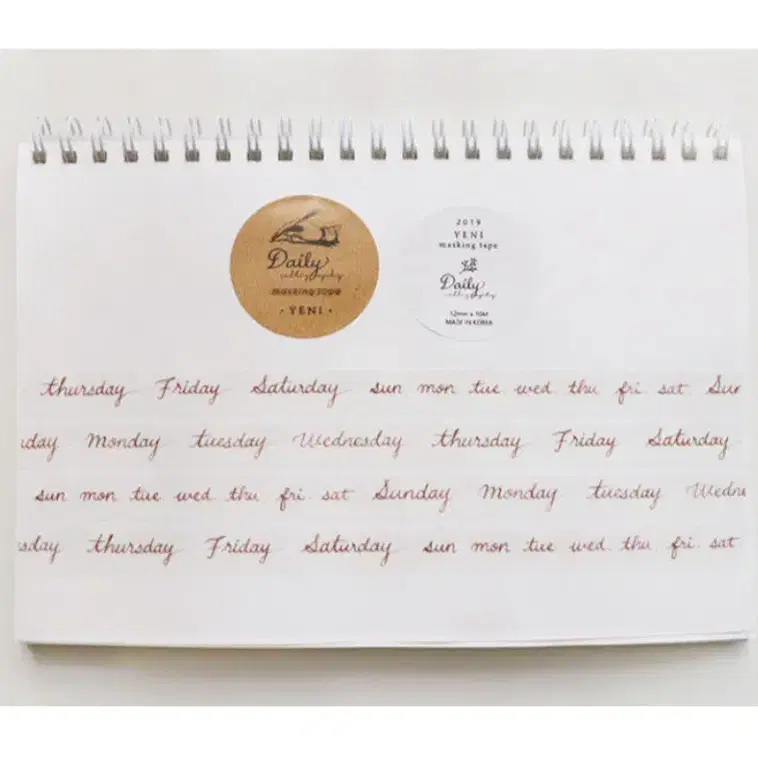 Daily
calligraphy
masking tape
· YENI ·
2019
YENI
masking tape
Daily
calligraphy
12mm x 10M
MADE IN KOREA
thursday Friday Saturday sun mon tue wed thu fri sat Sun
day Monday tuesday Wednesday thursday Friday Saturday
sun mon tue wed thu fri sat Sunday Monday tuesday Wedne
sday thursday Friday Saturday sun mon tue wed thu fri sat